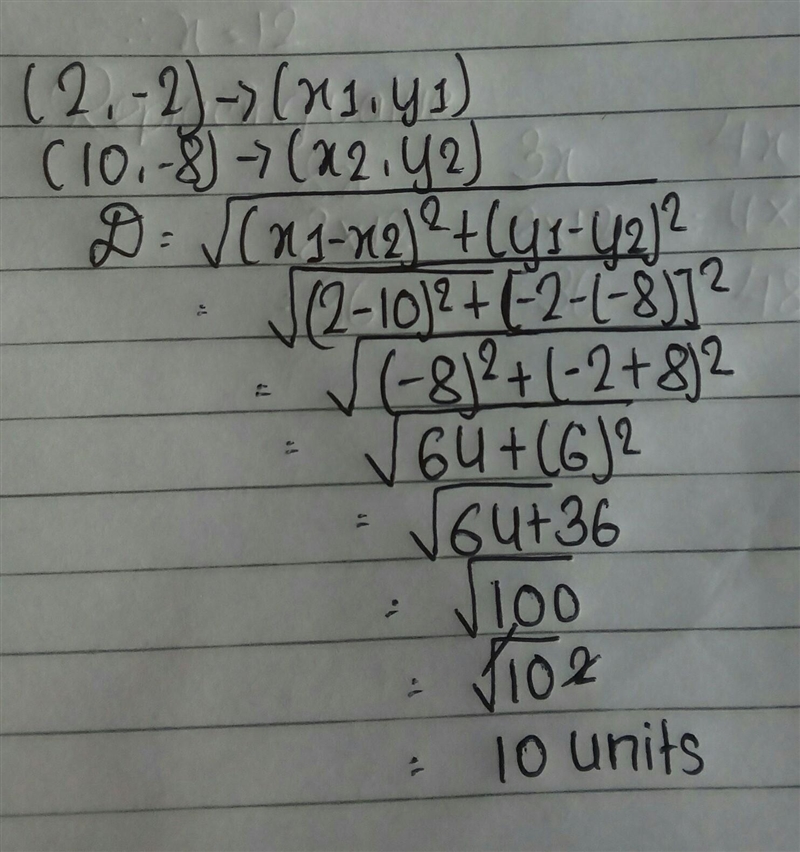 (2,-2)→(x1,y1)
(10,-8)→(x2,y2)
D = √(x1-x2)²+(y1-y2)²
= √(2-10)²+[-2-(-8)]²
= √(-8)²+(-2+8)²
= √64+(6)²
= √64+36
= √100
= √10 2
= 10 units